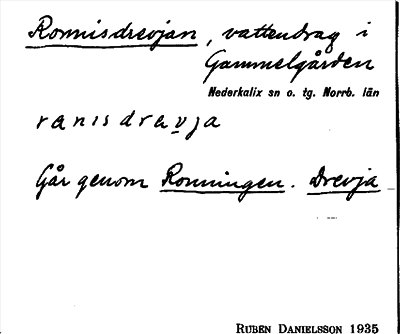 Ronnisdrevjan, vattendrag i
Gammelgården
Nederkalix sn o. tg. Norrb. län
ranisdrevja
Går genom Ronningen. Drevja
RUBEN DANIELSSON 1935